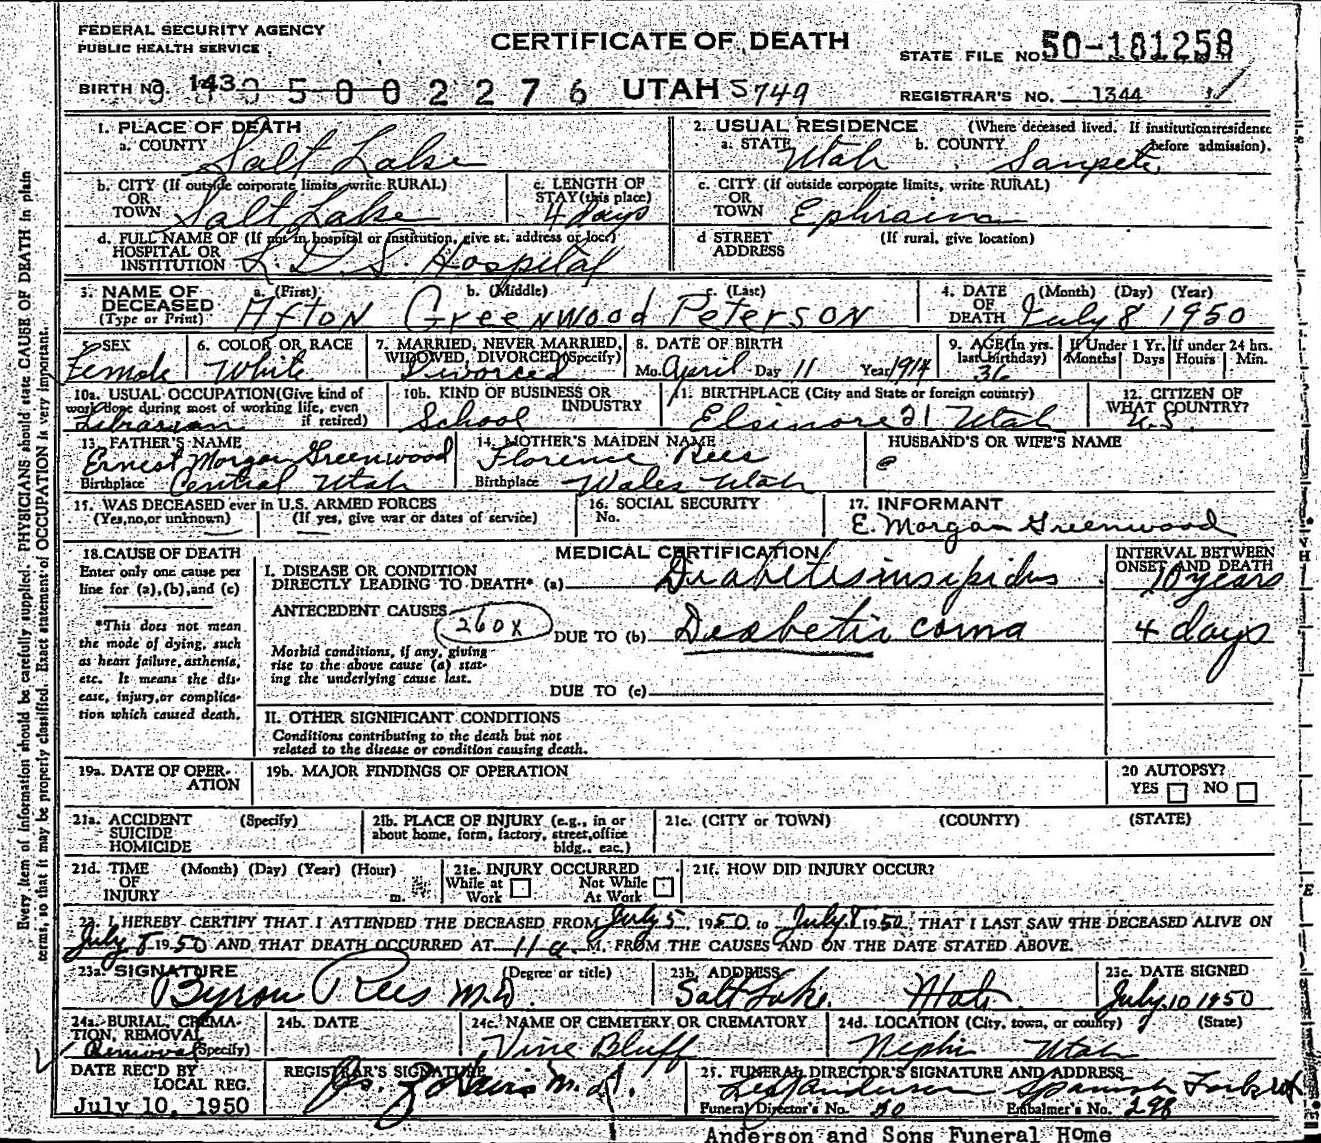 FEDERAL SECURITY AGENCY
PUBLIC HEALTH SERVICE
CERTIFICATE OF DEATH
STATE FILE NO. 50-181258
BIRTH NO. 143 5 0 0 2 2 7 6 UTAH 5749
REGISTRAR'S NO. 1344
1. PLACE OF DEATH
a. COUNTY Salt Lake
2. USUAL RESIDENCE (Where deceased lived. If institution:residence before admission).
a. STATE Utah b. COUNTY Sanpete
b. CITY (If outside corporate limits, write RURAL)
OR
TOWN Salt Lake
c. LENGTH OF
STAY (this place)
4 days
c. CITY (If outside corporate limits, write RURAL)
OR
TOWN Ephraim
d. FULL NAME OF (If not in hospital or institution, give st. address or locr)
HOSPITAL OR
INSTITUTION L. D. S. Hospital
d STREET (If rural, give location)
ADDRESS
3. NAME OF DECEASED
(Type or Print)
a. (First) b. (Middle) c. (Last)
Afton Greenwood Peterson
4. DATE OF DEATH (Month) (Day) (Year)
July 8 1950
5. SEX
Female
6. COLOR OR RACE
White
7. MARRIED, NEVER MARRIED,
WIDOWED, DIVORCED (Specify)
Divorced
8. DATE OF BIRTH
Mo. April Day 11 Year 1914
9. AGE (In yrs. last birthday)
36
If Under 1 Yr. Months Days
If under 24 hrs. Hours Min.
10a. USUAL OCCUPATION (Give kind of
work done during most of working life, even
if retired)
Librarian
10b. KIND OF BUSINESS OR
INDUSTRY
School
11. BIRTHPLACE (City and State or foreign country)
Elsinore 21 Utah
12. CITIZEN OF
WHAT COUNTRY?
U.S.
13. FATHER'S NAME
Ernest Morgan Greenwood
Birthplace Central Utah
14. MOTHER'S MAIDEN NAME
Florence Rees
Birthplace Wales Utah
HUSBAND'S OR WIFE'S NAME
15. WAS DECEASED ever in U.S. ARMED FORCES
(Yes, no, or unknown) (If yes, give war or dates of service)
16. SOCIAL SECURITY
No.
17. INFORMANT
E. Morgan Greenwood
18. CAUSE OF DEATH
Enter only one cause per
line for (a), (b), and (c)
*This does not mean
the mode of dying, such
as heart failure, asthenia,
etc. It means the dis-
ease, injury, or complica-
tion which caused death.
MEDICAL CERTIFICATION
INTERVAL BETWEEN
ONSET AND DEATH
I. DISEASE OR CONDITION
DIRECTLY LEADING TO DEATH* (a) Diabetis insipidus
10 years
ANTECEDENT CAUSES
260X
DUE TO (b) Diabetic coma
4 days
Morbid conditions, if any, giving
rise to the above cause (a) stat-
ing the underlying cause last.
DUE TO (c)
II. OTHER SIGNIFICANT CONDITIONS
Conditions contributing to the death but not
related to the disease or condition causing death.
19a. DATE OF OPER-
ATION
19b. MAJOR FINDINGS OF OPERATION
20 AUTOPSY?
YES NO
21a. ACCIDENT (Specify)
SUICIDE
HOMICIDE
21b. PLACE OF INJURY (e.g., in or
about home, form, factory, street, office
bldg., eac.)
21c. (CITY or TOWN) (COUNTY) (STATE)
21d. TIME (Month) (Day) (Year) (Hour)
OF
INJURY m.
21e. INJURY OCCURRED
While at Work Not While At Work
21f. HOW DID INJURY OCCUR?
22. I HEREBY CERTIFY THAT I ATTENDED THE DECEASED FROM July 5, 1950 to July 8 1950, THAT I LAST SAW THE DECEASED ALIVE ON
July 8 1950 AND THAT DEATH OCCURRED AT 11 a M. FROM THE CAUSES AND ON THE DATE STATED ABOVE.
23a. SIGNATURE (Degree or title)
Byron Rees M.D.
23b. ADDRESS
Salt Lake. Utah
23c. DATE SIGNED
July 10 1950
24a. BURIAL, CREMA-
TION, REMOVAL (Specify)
Removal
24b. DATE
24c. NAME OF CEMETERY OR CREMATORY
Vine Bluff
24d. LOCATION (City, town, or county) (State)
Nephi Utah
DATE REC'D BY
LOCAL REG.
July 10, 1950
REGISTRAR'S SIGNATURE
M.D.
25. FUNERAL DIRECTOR'S SIGNATURE AND ADDRESS
Anderson Spanish Fork
Funeral Director's No. 50 Embalmer's No. 298
Anderson and Sons Funeral Home
Every item of information should be carefully supplied. PHYSICIANS should state CAUSE OF DEATH in plain
terms, so that it may be properly classified. Exact statement of OCCUPATION is very important.